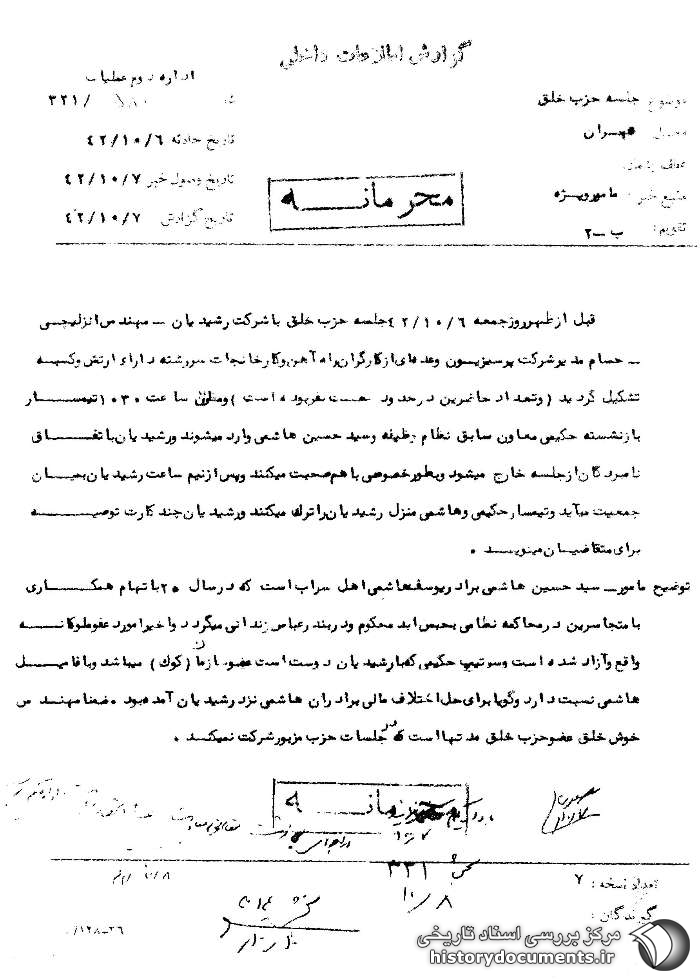 گزارش اطلاعات داخلی
اداره دوم عملیات
۳۲۱/
موضوع جلسه حزب خلق
محل تهران
تاریخ حادثه ۴۲/۱۰/۶
تاریخ وصول خبر ۴۲/۱۰/۷
منبع خبر: مامور ویژه
تاریخ گزارش ۴۲/۱۰/۷
تقویم: ب ــ ۲
محرمانــه
قبل از ظهر روز جمعه ۴۲/۱۰/۶ جلسه حزب خلق با شرکت رشیدیان ــ مهندس انزلیچی
ــ حسام مدیر شرکت پرسیزیسون وعده‌ای از کارگران راه آهن وکارخانجات سررشته داراء ارتش وکسبه
تشکیل گردید (وتعداد حاضرین در حدود نفر بوده است) ساعت ۱۰۳۰ تیمسار
بازنشسته حکیمی معاون سابق نظام وظیفه وسید حسین هاشمی وارد میشوند ورشیدیان باتفاق
نامبردگان از جلسه خارج میشود وبطور خصوصی باهم صحبت میکنند وپس از نیم ساعت رشیدیان بمیان
جمعیت میآید وتیمسار حکیمی وهاشمی منزل رشیدیان را ترک میکنند ورشیدیان چند کارت توصیه
برای متقاضیان مینویسد .
توضیح مامورــ سید حسین هاشمی برادر یوسف هاشمی اهل سراب است که در سال ۲۵ باتهام همکاری
با متجاسرین در محاکمه نظامی بحبس ابد محکوم ودر بندرعباس زندانی میگردد واخیرا مورد عفو ملوکانه
واقع وآزاد شده است وسرتیپ حکیمی که با رشیدیان دوست است عضو سازمان (کوک) میباشد وبا فامیل
هاشمی نسبت دارد وگویا برای حل اختلاف مالی برادران هاشمی نزد رشیدیان آمده بود . ضمنا مهندس
خوش خلق عضو حزب خلق مدتها است که در جلسات حزب مزبور شرکت نمیکند .
محرمانــه
۳۲۱
۱۰/۸
تعداد نسخه : ۷
گیرندگان :
۱۲۸-۲۶/
مرکز بررسی اسناد تاریخی
historydocuments.ir